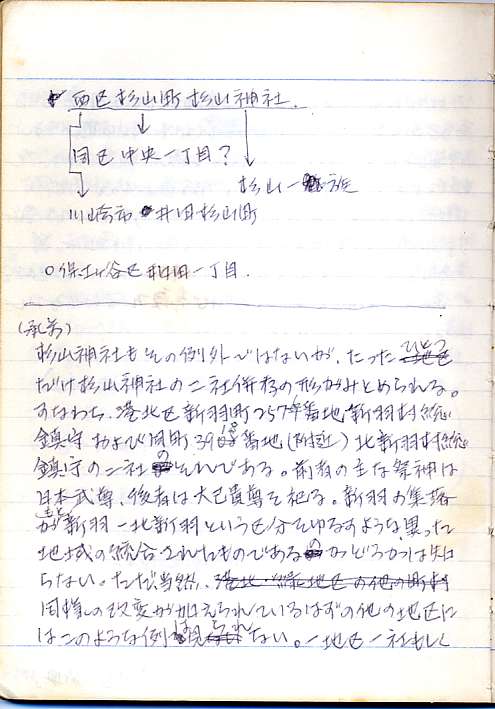 西区杉山町杉山神社.
同区中央一丁目?
杉山一族
川崎市 井田杉山町
○保土ヶ谷区和田一丁目.
(承前)
杉山神社もその例外ではないが、たった ひとつ
だけ杉山神社の二社併存の形がみとめられる。
すなわち、港北区新羽町2576番地新羽村総
鎮守および同町3918番地(附近)北新羽村総
鎮守の二社のそれである。前者の主な祭神は
日本武尊、後者は大己貴尊を祀る。新羽の集落
が新羽―北新羽という区分をゆるすような異った
地域の統合されたものであるのかどうかは知
らない。ただ当然、港北・緑地区の他の町村
同様の改変が加えられているはずの他の地区に
はこのような例は見られない。一地区一社もしく